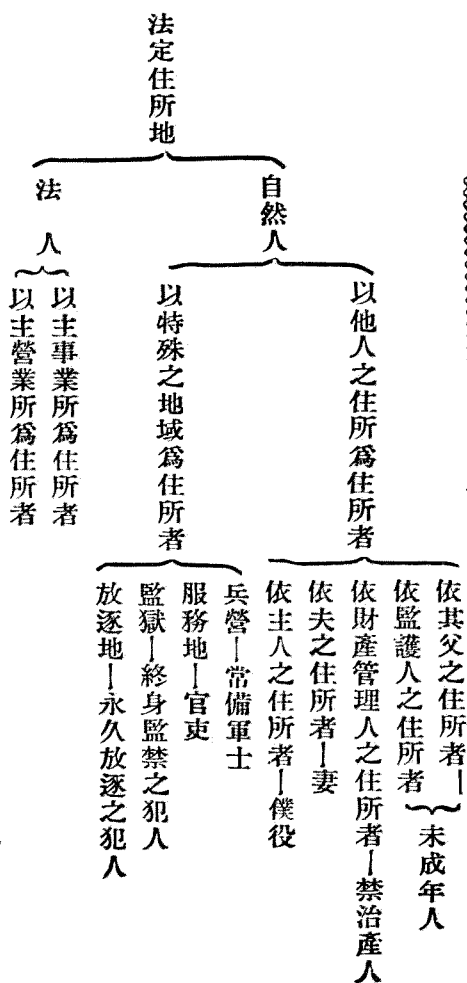 法定住所地
自然人
以他人之住所爲住所者
依其父之住所者—
依監護人之住所者
未成年人
依財產管理人之住所者—禁治產人
依夫之住所者—妻
依主人之住所者—僕役
以特殊之地域爲住所者
兵營—常備軍士
服務地—官吏
監獄—終身監禁之犯人
放逐地—永久放逐之犯人
法人
以主事業所爲住所者
以主營業所爲住所者